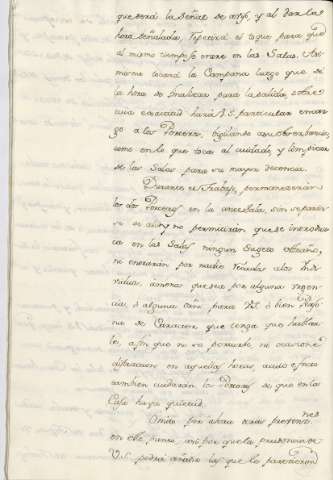 que será la Señal de aviso, y al dar la
hora señalada, repetirá el toque para que
al mismo tiempo se entre en las Salas. Asi
mismo tocará la Campana luego que dé
la hora de finalizar para la salida, sobre
cuia exactitud hará V.S. particular encar
go a los Porteros, vigilando en su observancia,
como en lo que toca al cuidado, y limpieza
de las Salas para su mayor decencia.
Durante el trabajo, permanecerán
los dos Porteros en la antesala, sin separar
se de alli y no permitirán que se introduz
ca en las Salas ningun Sugeto extraño,
ni entrarán por nadie recados a los Indi
viduos, menos que sea por alguna urgen
cia, ó alguna para V.S. ó bien
de Caracter que tenga que hablar
le, a fin que ni se perturbe ni ocasione
distraccion en aquellas horas, a cuio efecto
tambien cuidarán los Porteros de que en la
Casa haya quietud.
Omito por ahora otras prevenciones
en este punto, asi por que la prudencia de
V.S. podrá añadir las que le parecieren